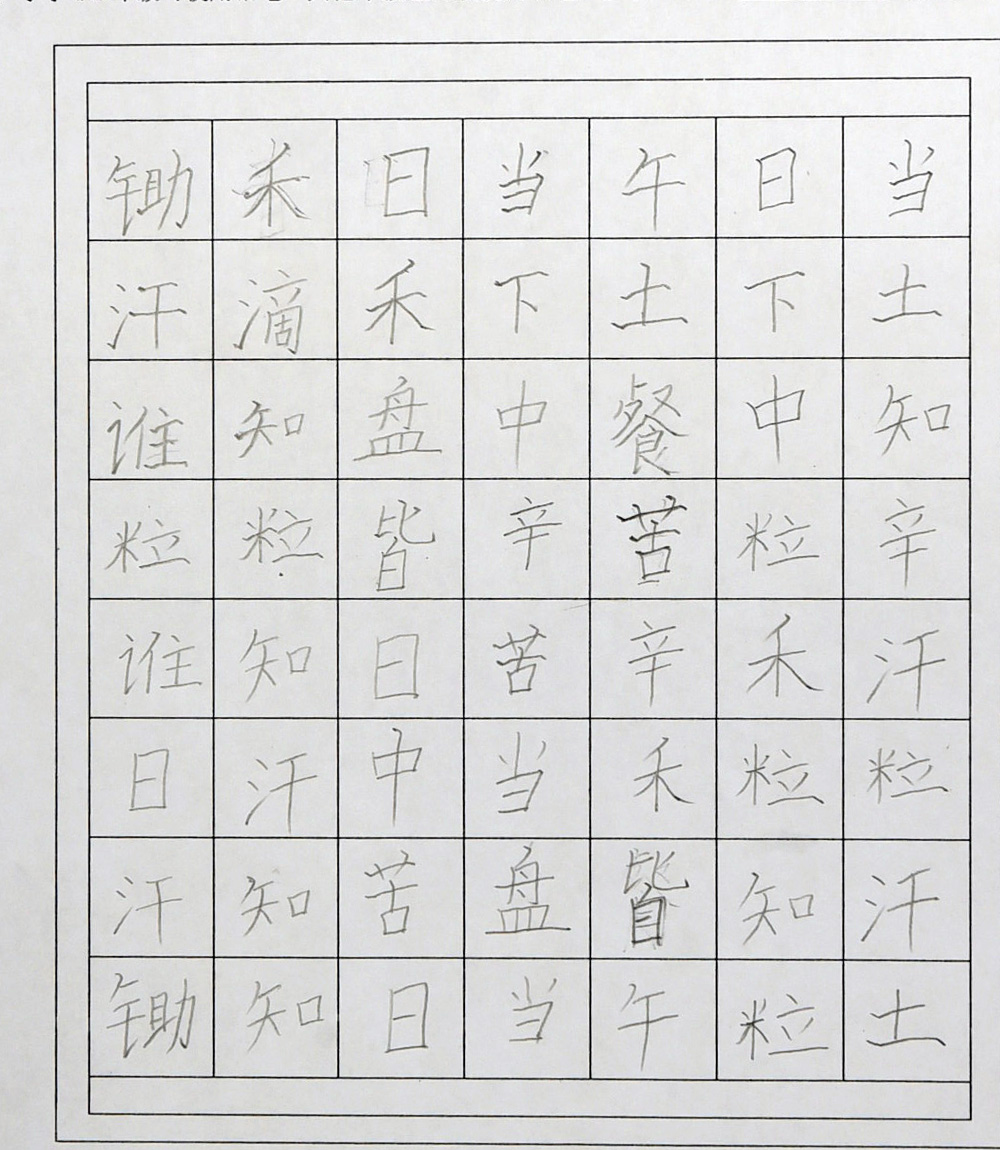 锄禾日当午日当
汗滴禾下土下土
谁知盘中餐中知
粒粒皆辛苦粒辛
谁知日苦辛禾汗
日汗中当禾粒粒
汗知苦盘皆知汗
锄知日当午粒土